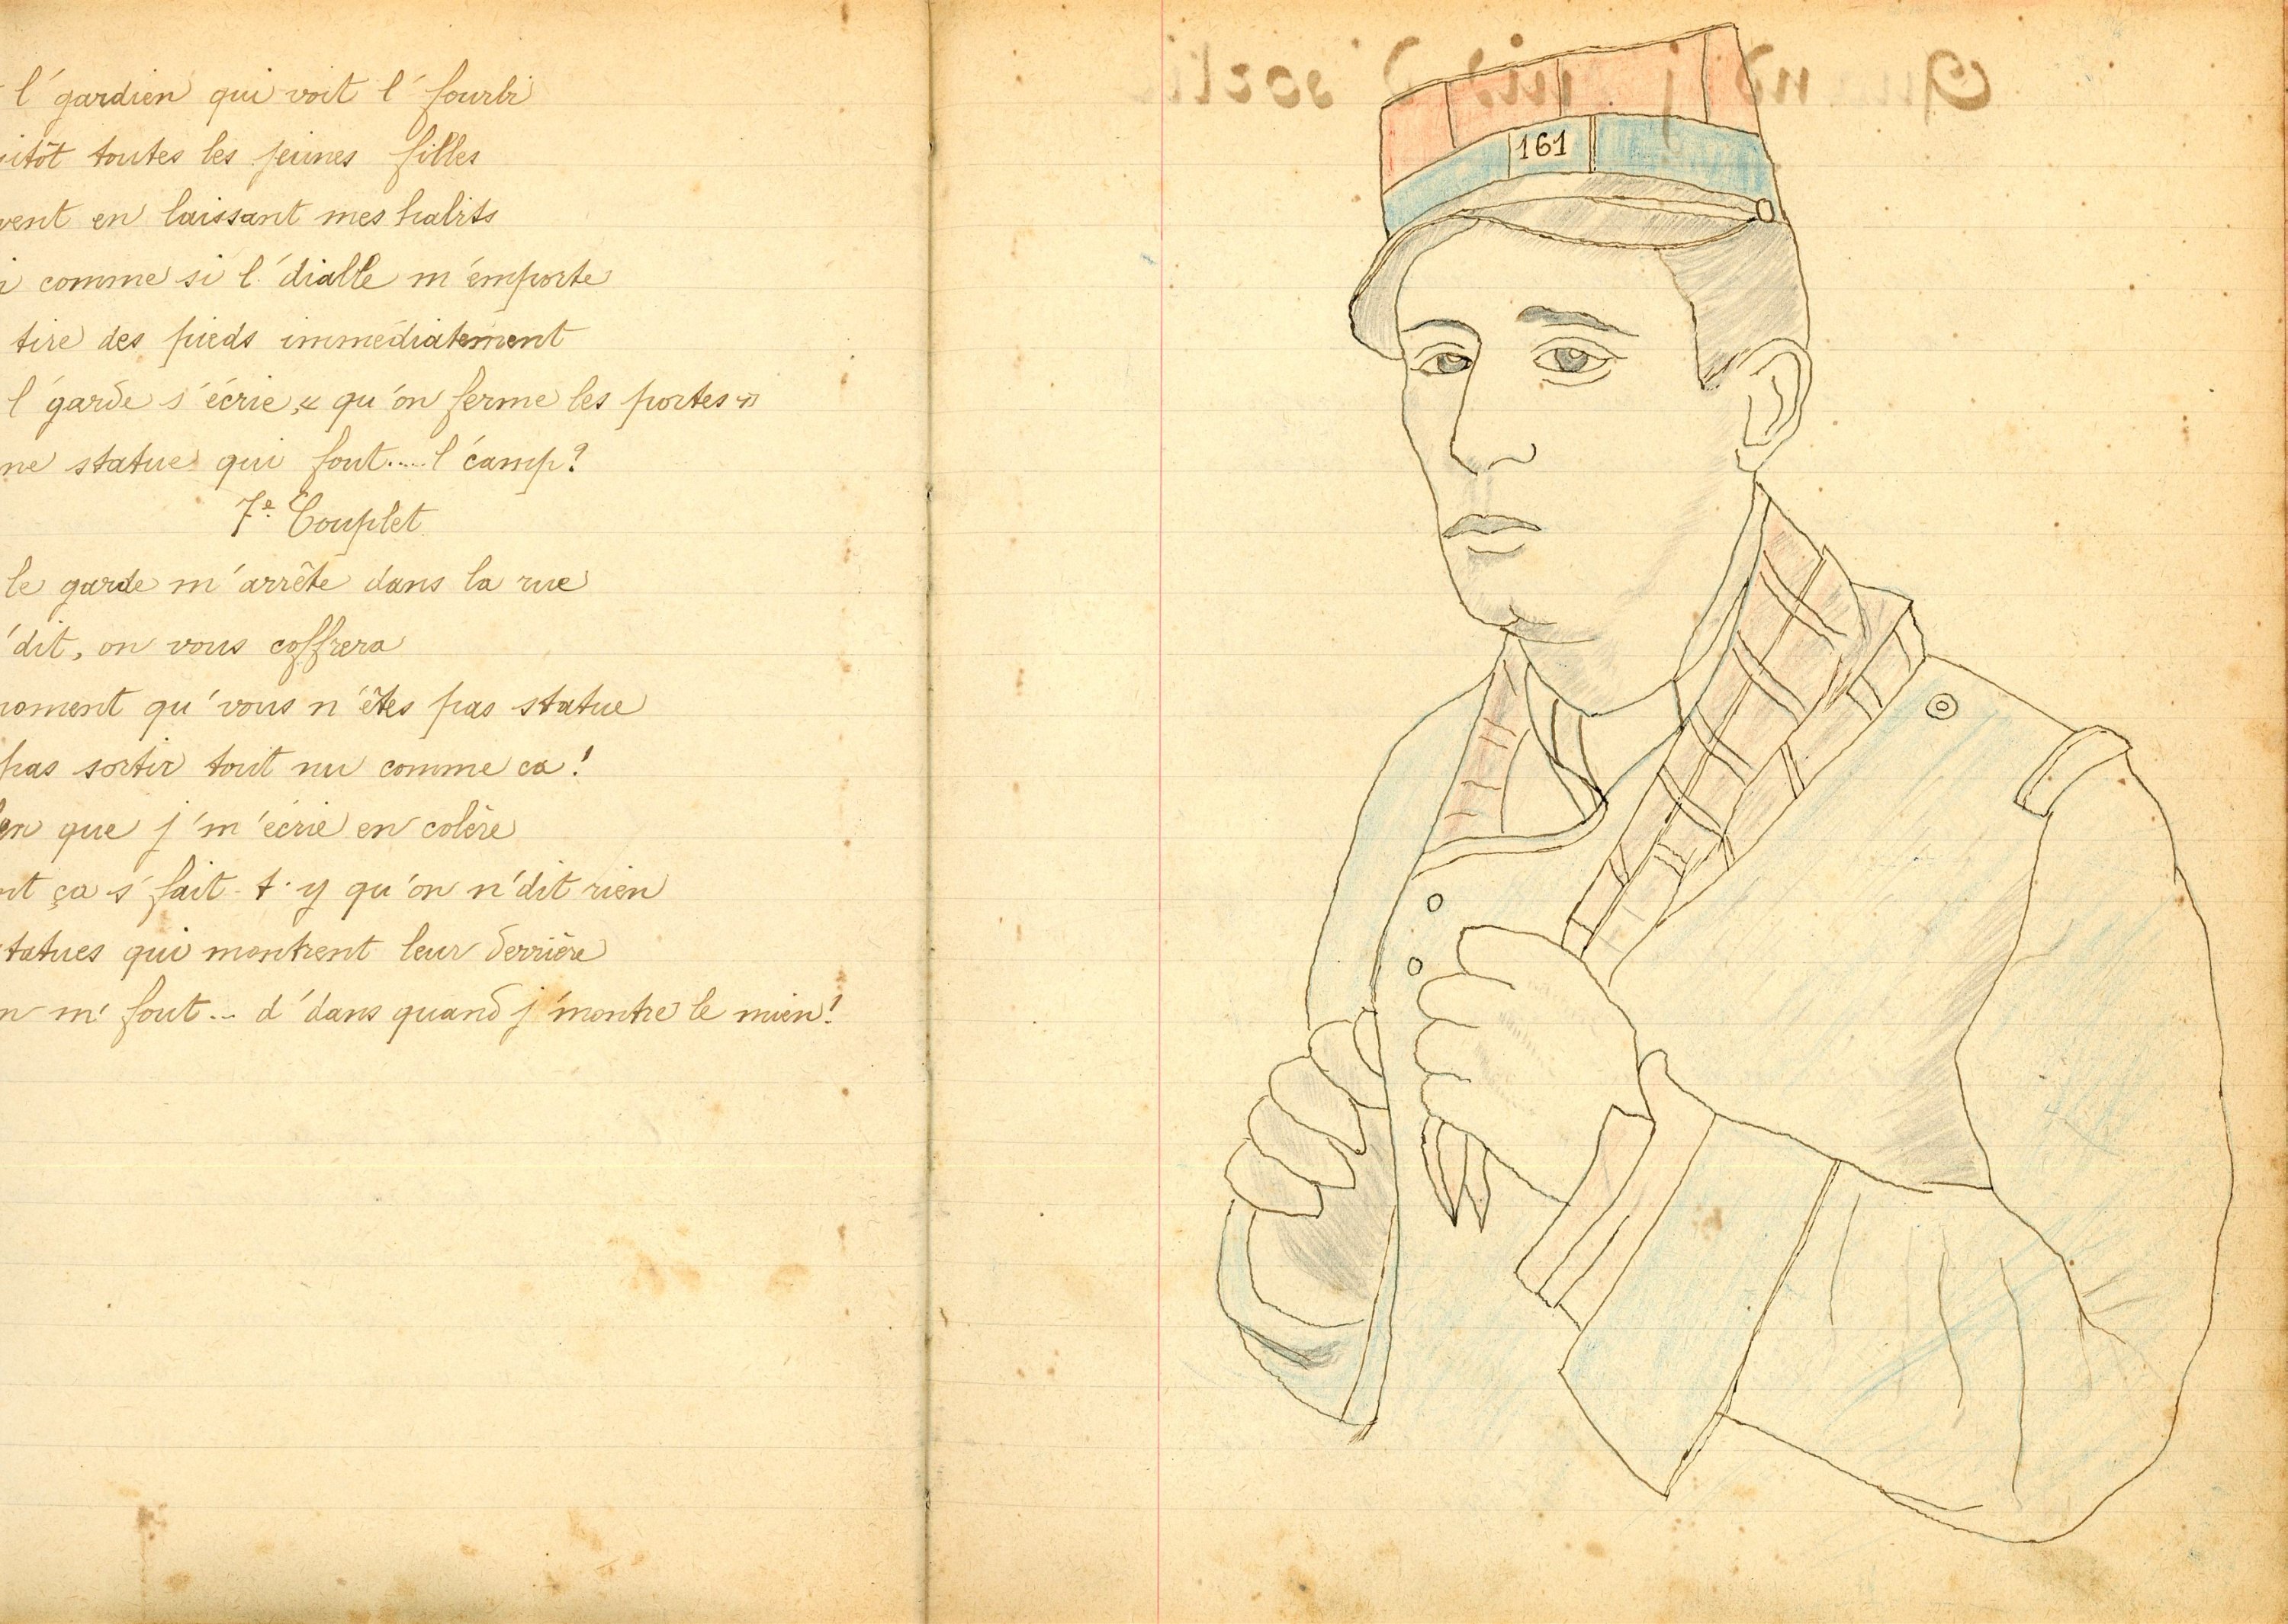 l'gardien qui voit l'fourbi
toutes les jeunes filles
en laissant mes habits
comme si l'diable m'emporte
tire des pieds immédiatement
l'garde s'écrie, « qu'on ferme les portes »
statue qui fout.....l'camp?
7e Couplet
le garde m'arrête dans la rue
'dit, on vous coffrera
qu'vous n'êtes pas statue
pas sortir tout nu comme ca!
que j'm'écrie en colère
ça s'fait-t-y qu'on n'dit rien
qui montrent leur derrière
m'fout... d'dans quand j'montre le mien!
161